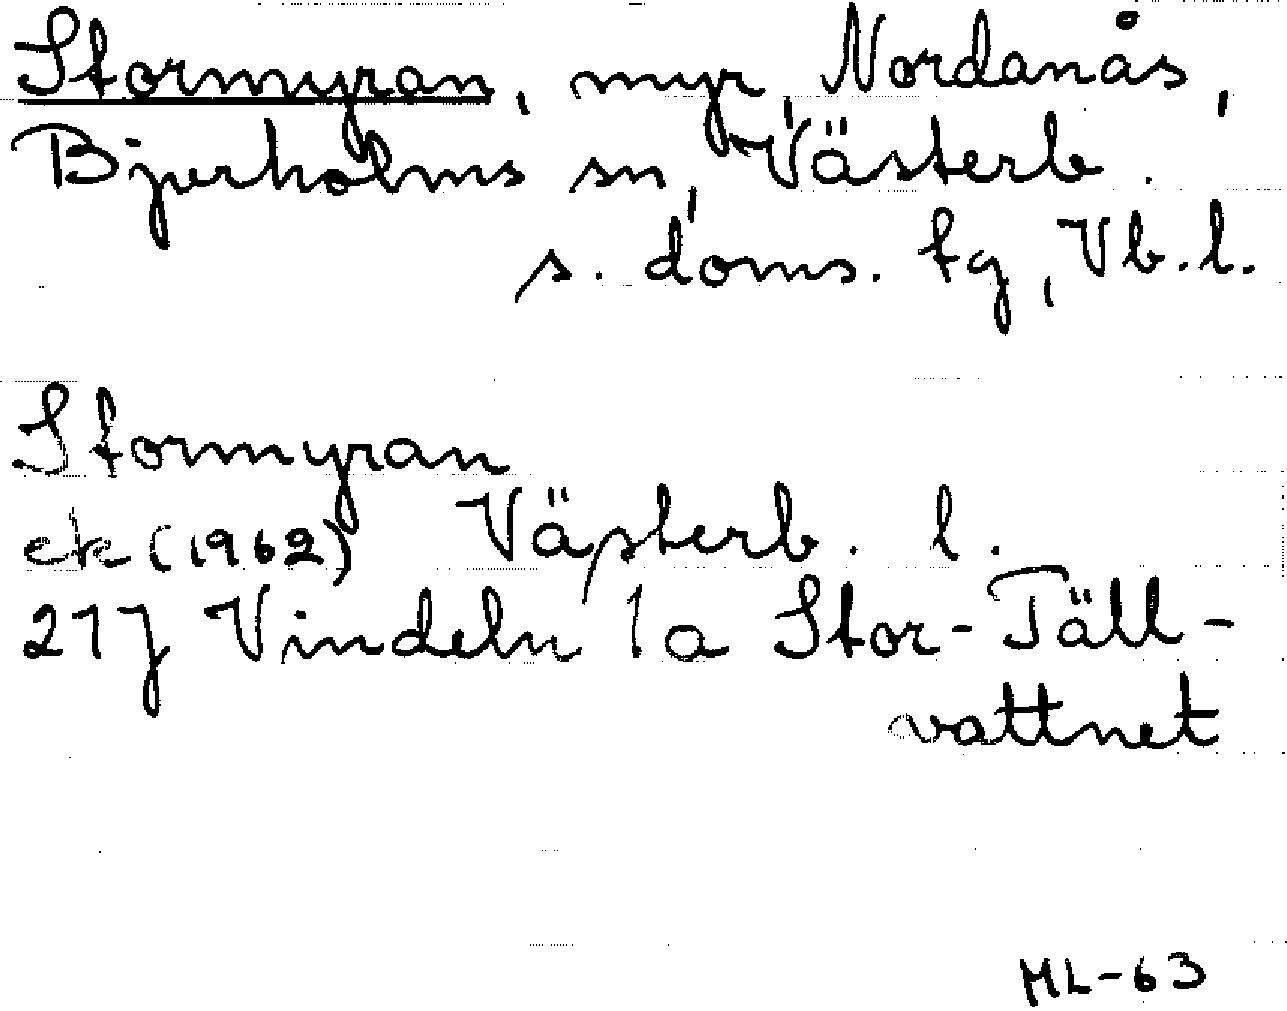 Stormyran, myr, Nordanås,
Bjurholms sn, Västerb.
s. doms. tg, Vb. l.
Stormyran
ek (1962) Västerb. l.
21J Vindeln 1a Stor-Täll-
vattnet
ML-63